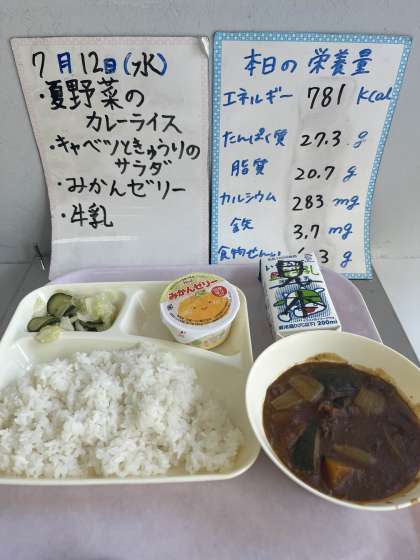 7月12日(水)
・夏野菜の
カレーライス
・キャベツときゅうりの
サラダ
・みかんゼリー
・牛乳
本日の栄養量
エネルギー 781 Kcal
たんぱく質 27.3 g
脂質 20.7 g
カルシウム 283 mg
鉄 3.7 mg
食物せんい .3 g
みかんゼリー
200ml